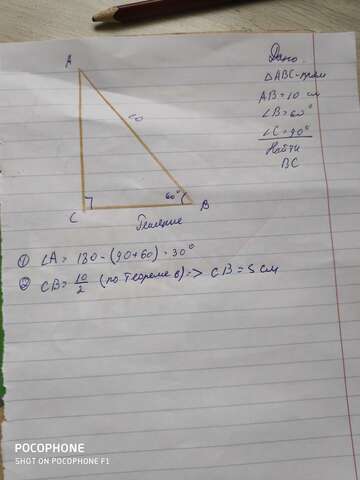 Дано
△ABC-прям
AB=10 см
∠B=60°
∠C=90°
Найти
BC
A
10
60°
C
B
Решение
① ∠A = 180 - (90+60) = 30°
② CB = 10/2 (по теореме 6) => CB = 5 см
POCOPHONE
SHOT ON POCOPHONE F1